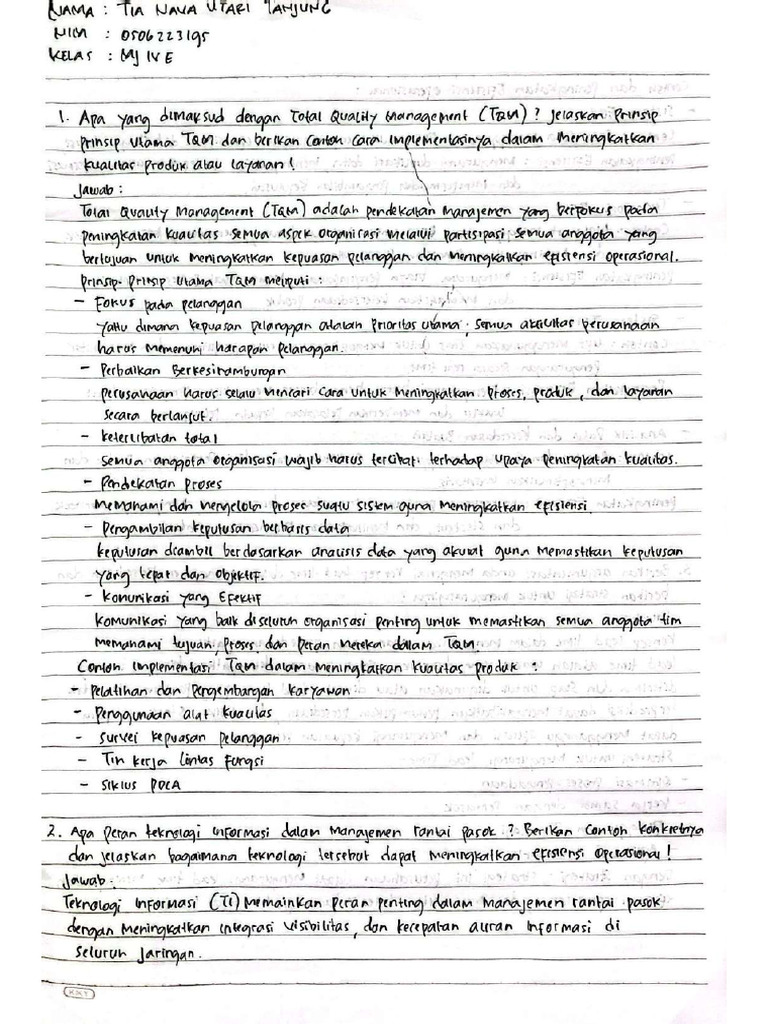 NAMA : TIA NAVA UTARI TANJUNG
NIM : 0506223195
KELAS : MJ IVE
1. Apa yang dimaksud dengan Total Quality Management (TQM) ? Jelaskan Prinsip
prinsip utama TQM dan berikan Contoh Cara Implementasinya dalam Meningkatkan
kualitas produk atau layanan !
Jawab :
Total Quality Management (TQM) adalah pendekatan manajemen yang berfokus pada
peningkatan kualitas semua aspek organisasi melalui partisipasi semua anggota yang
bertujuan untuk meningkatkan kepuasan pelanggan dan meningkatkan efisiensi operasional.
prinsip-prinsip utama TQM meliputi :
- Fokus pada pelanggan
Yaitu dimana kepuasan pelanggan adalah prioritas utama, semua aktivitas perusahaan
harus memenuhi harapan pelanggan.
- Perbaikan Berkesinambungan
perusahaan harus selalu mencari cara untuk meningkatkan proses, produk, dan layanan
secara berlanjut.
- keterlibatan total
semua anggota organisasi wajib harus terlibat terhadap upaya peningkatan kualitas.
- Pendekatan proses
Memahami dan mengelola proses suatu sistem guna meningkatkan efisiensi.
- Pengambilan keputusan berbasis data
keputusan diambil berdasarkan analisis data yang akurat guna memastikan keputusan
yang tepat dan objektif.
- Komunikasi yang Efektif
komunikasi yang baik diseluruh organisasi penting untuk memastikan semua anggota tim
memahami tujuan, proses dan peran mereka dalam TQM.
Contoh Implementasi TQM dalam Meningkatkan kualitas produk :
- Pelatihan dan Pengembangan karyawan
- Penggunaan alat kualitas
- survei kepuasan pelanggan
- Tim kerja lintas fungsi
- siklus PDCA
2. Apa peran teknologi informasi dalam manajemen rantai pasok ? Berikan Contoh konkretnya
dan jelaskan bagaimana teknologi tersebut dapat meningkatkan efisiensi operasional !
Jawab :
Teknologi Informasi (TI) memainkan peran penting dalam manajemen rantai pasok
dengan meningkatkan integrasi visibilitas, dan kecepatan aliran informasi di
seluruh jaringan.
KKY